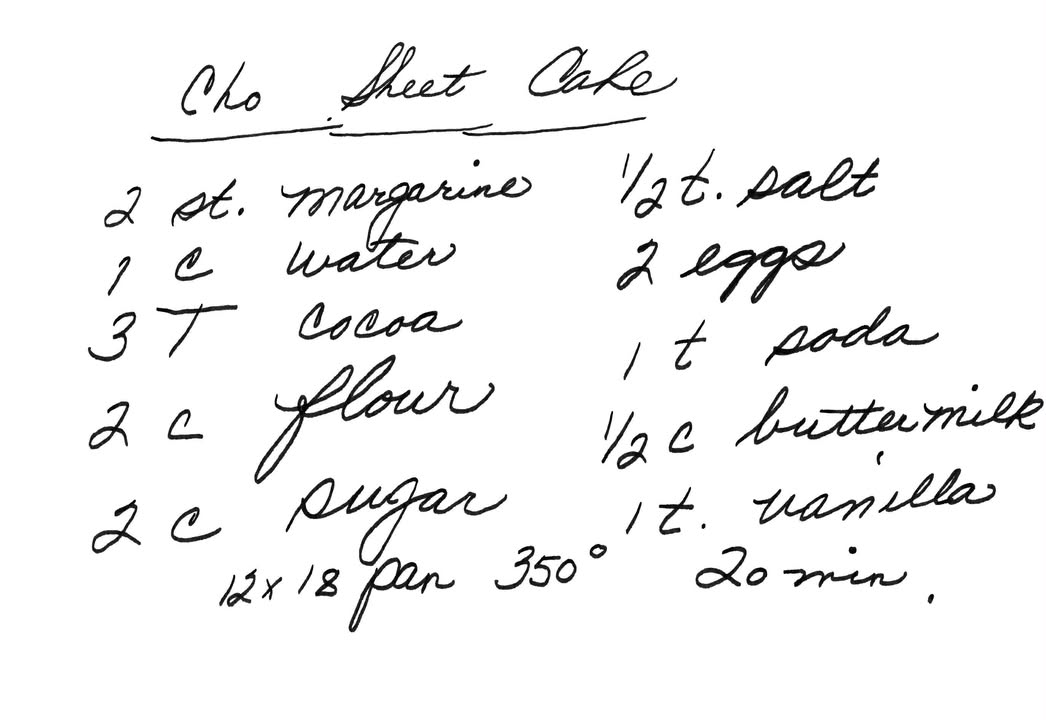 Cho Sheet Cake
2 st. margarine
1 c water
3 T cocoa
2 c flour
2 c sugar
1/2 t. salt
2 eggs
1 t soda
1/2 c buttermilk
1 t. vanilla
12 x 18 pan 350° 20 min.